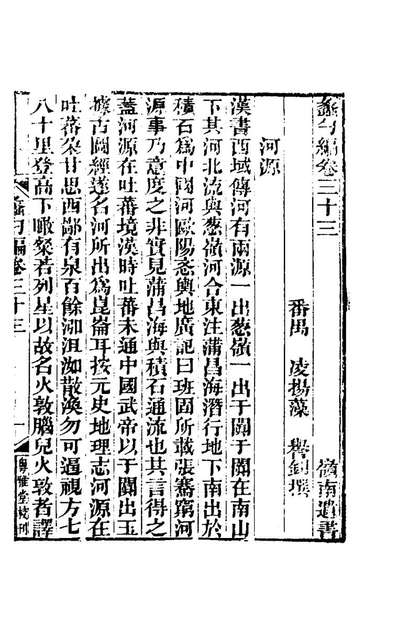 蠡勺編卷三十三
嶺南遺書
番禺 凌揚藻 譽釗撰
河源
漢書西域傳河有兩源一出葱嶺一出于闐于闐在南山
下其河北流與葱嶺河合東注蒲昌海潛行地下南出於
積石為中國河歐陽忞輿地廣記曰班固所載張騫窮河
源事乃意度之非實見蒲昌海與積石通流也其言得之
蓋河源在吐蕃境漢時吐蕃未通中國武帝以于闐出玉
據古圖經遂名河所出為崑崙耳按元史地理志河源在
吐蕃朶甘思西鄙有泉百餘泓沮洳散渙勿可逼視方七
八十里登高下瞰燦若列星以故名火敦腦兒火敦者譯
蠡勺編卷三十三
一
粤雅堂校刊